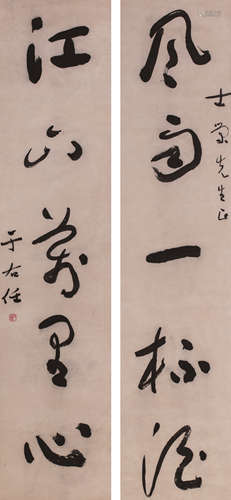 风雨一杯酒
士荣先生正
江山万里心
于右任